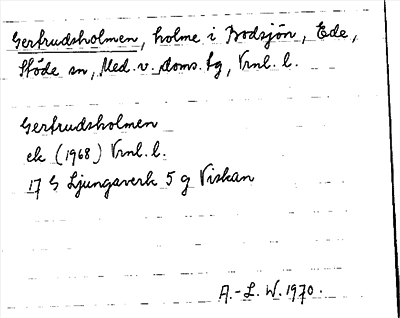 Gertrudsholmen, holme i Bodsjön, Ede,
Stöde sn, Med. v. doms. tg, Vrnl. l.
Gertrudsholmen
ek (1968) Vrnl. l.
17 G Ljungaverk 5 g Viskan
A.-L. W. 1970.